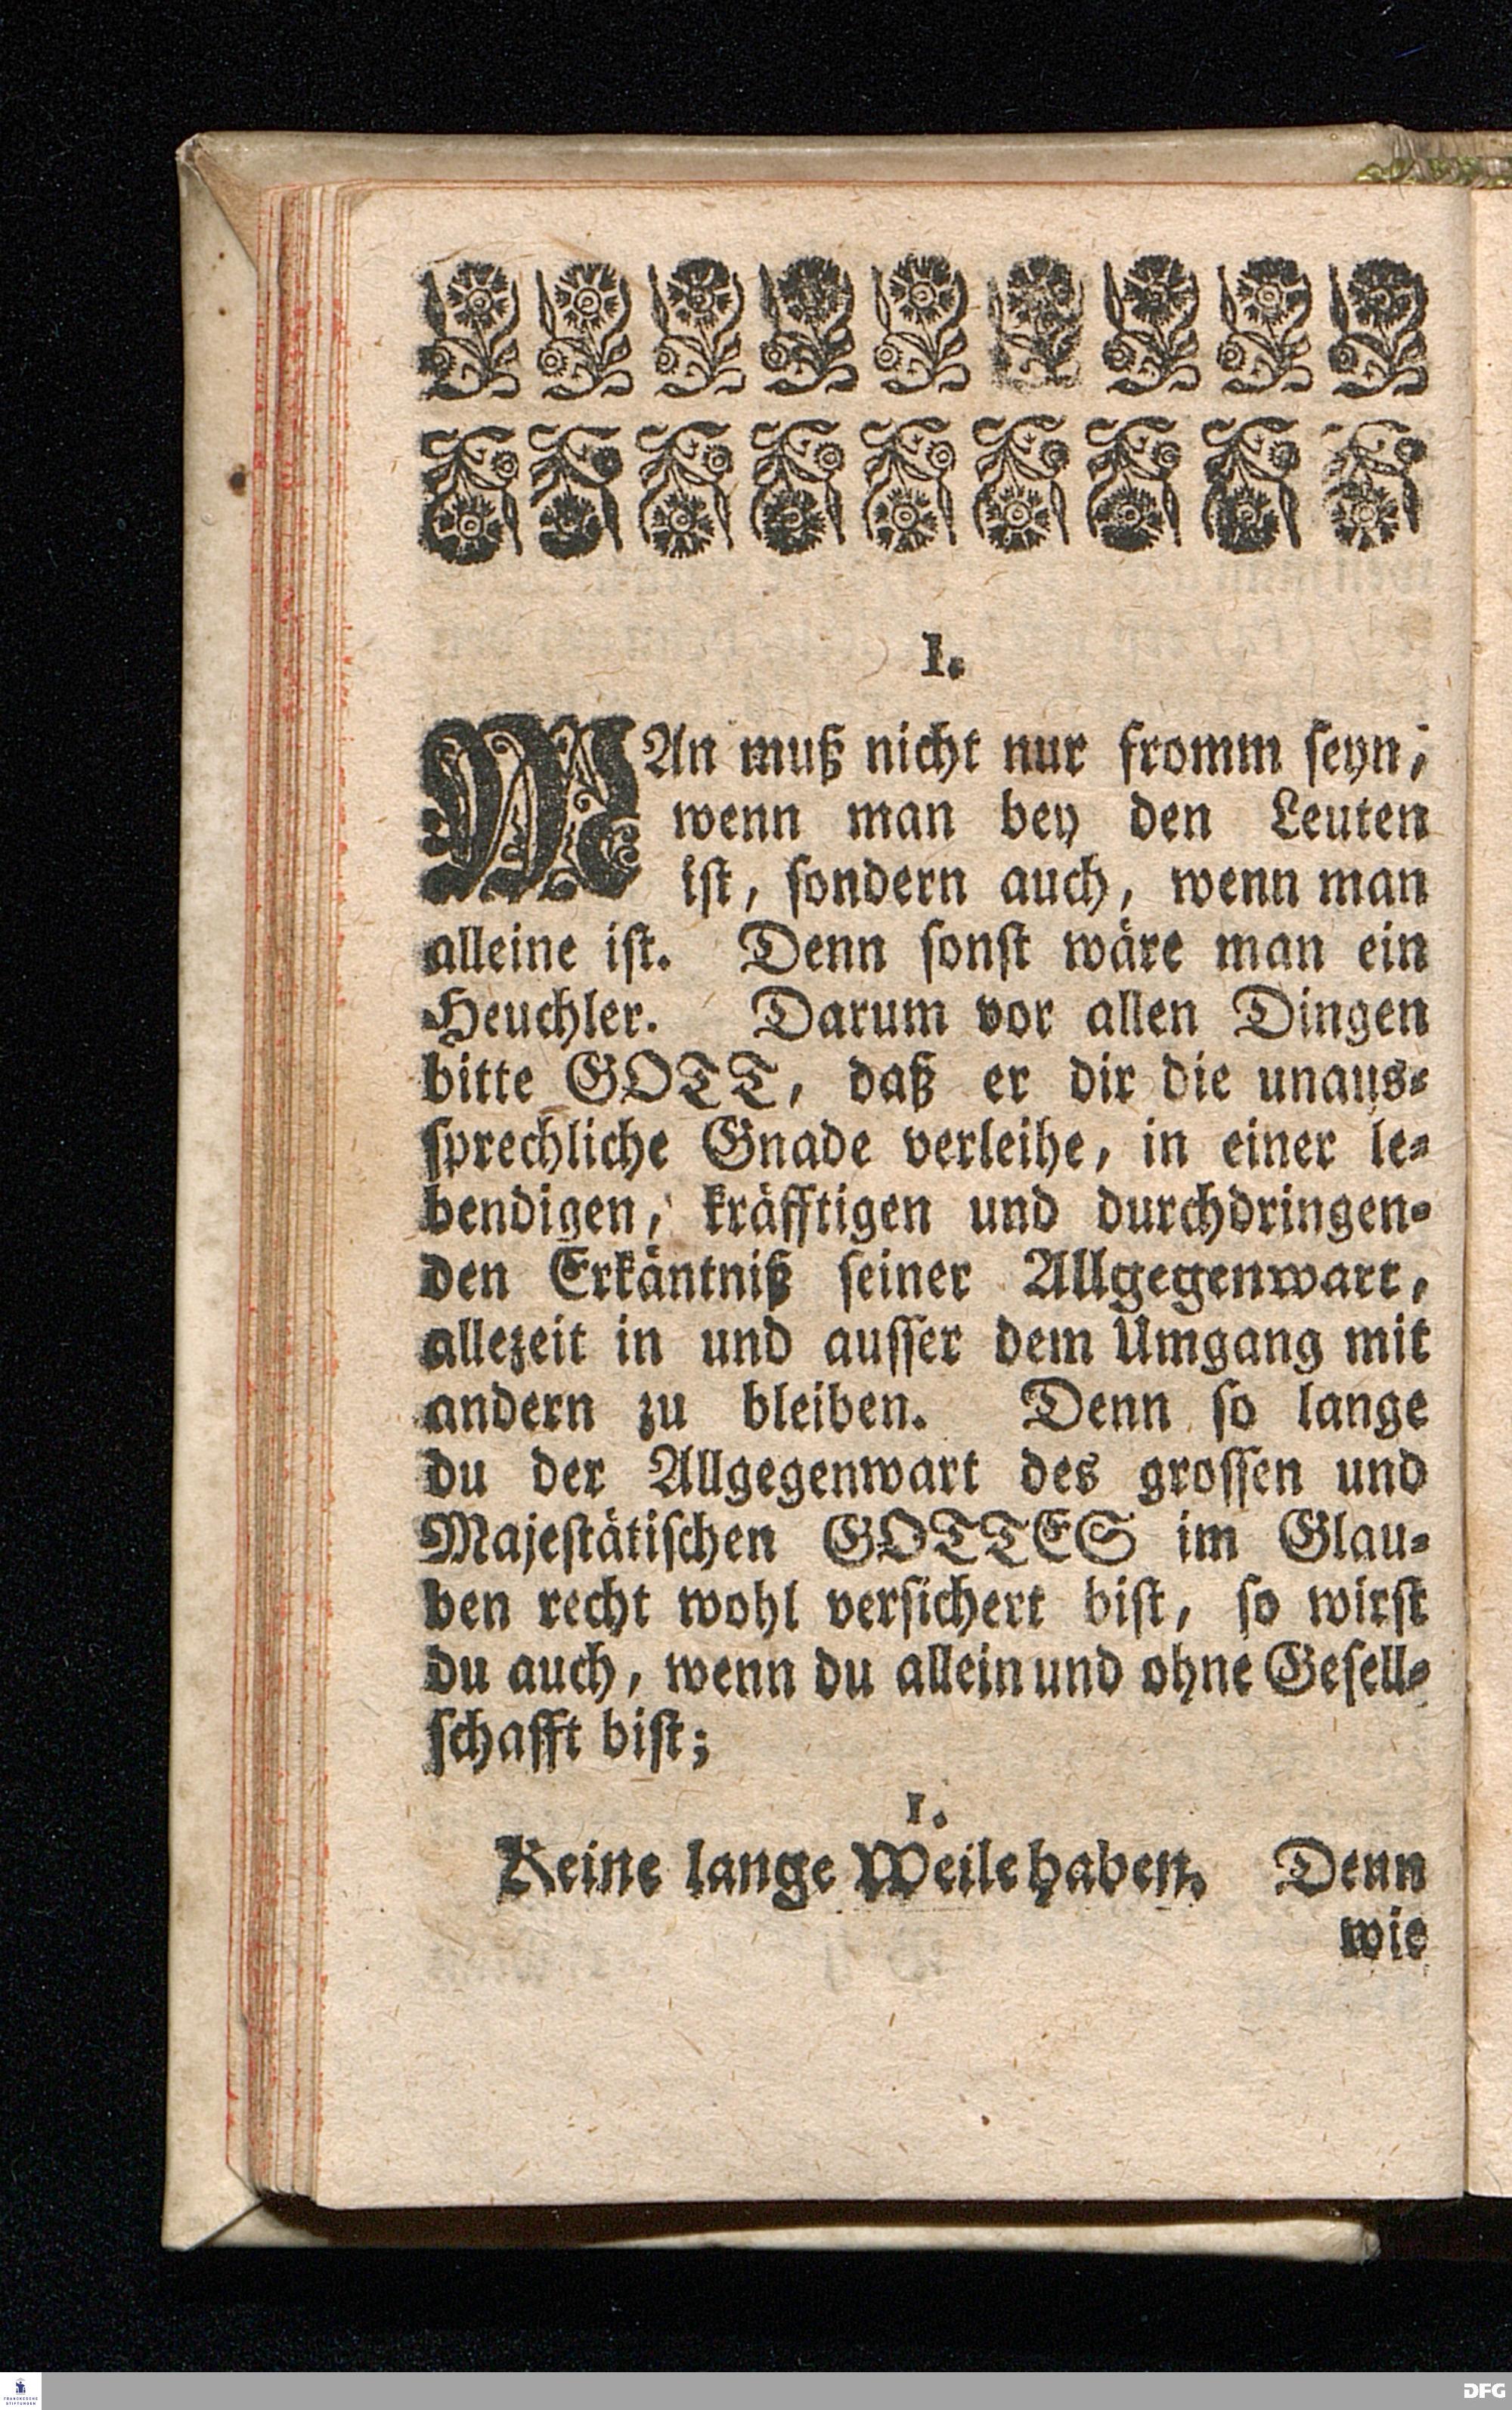 I.
MAn muß nicht nur fromm seyn,
wenn man bey den Leuten
ist, sondern auch, wenn man
alleine ist. Denn sonst wäre man ein
Heuchler. Darum vor allen Dingen
bitte GOTT, daß er dir die unaus-
sprechliche Gnade verleihe, in einer le-
bendigen, kräfftigen und durchdringen-
den Erkäntniß seiner Allgegenwart,
allezeit in und ausser dem Umgang mit
andern zu bleiben. Denn so lange
du der Allgegenwart des grossen und
Majestätischen GOTTES im Glau-
ben recht wohl versichert bist, so wirst
du auch, wenn du allein und ohne Gesell-
schafft bist;
1.
Keine lange Weile haben. Denn
wie
FRANCKESCHE
STIFTUNGEN
DFG